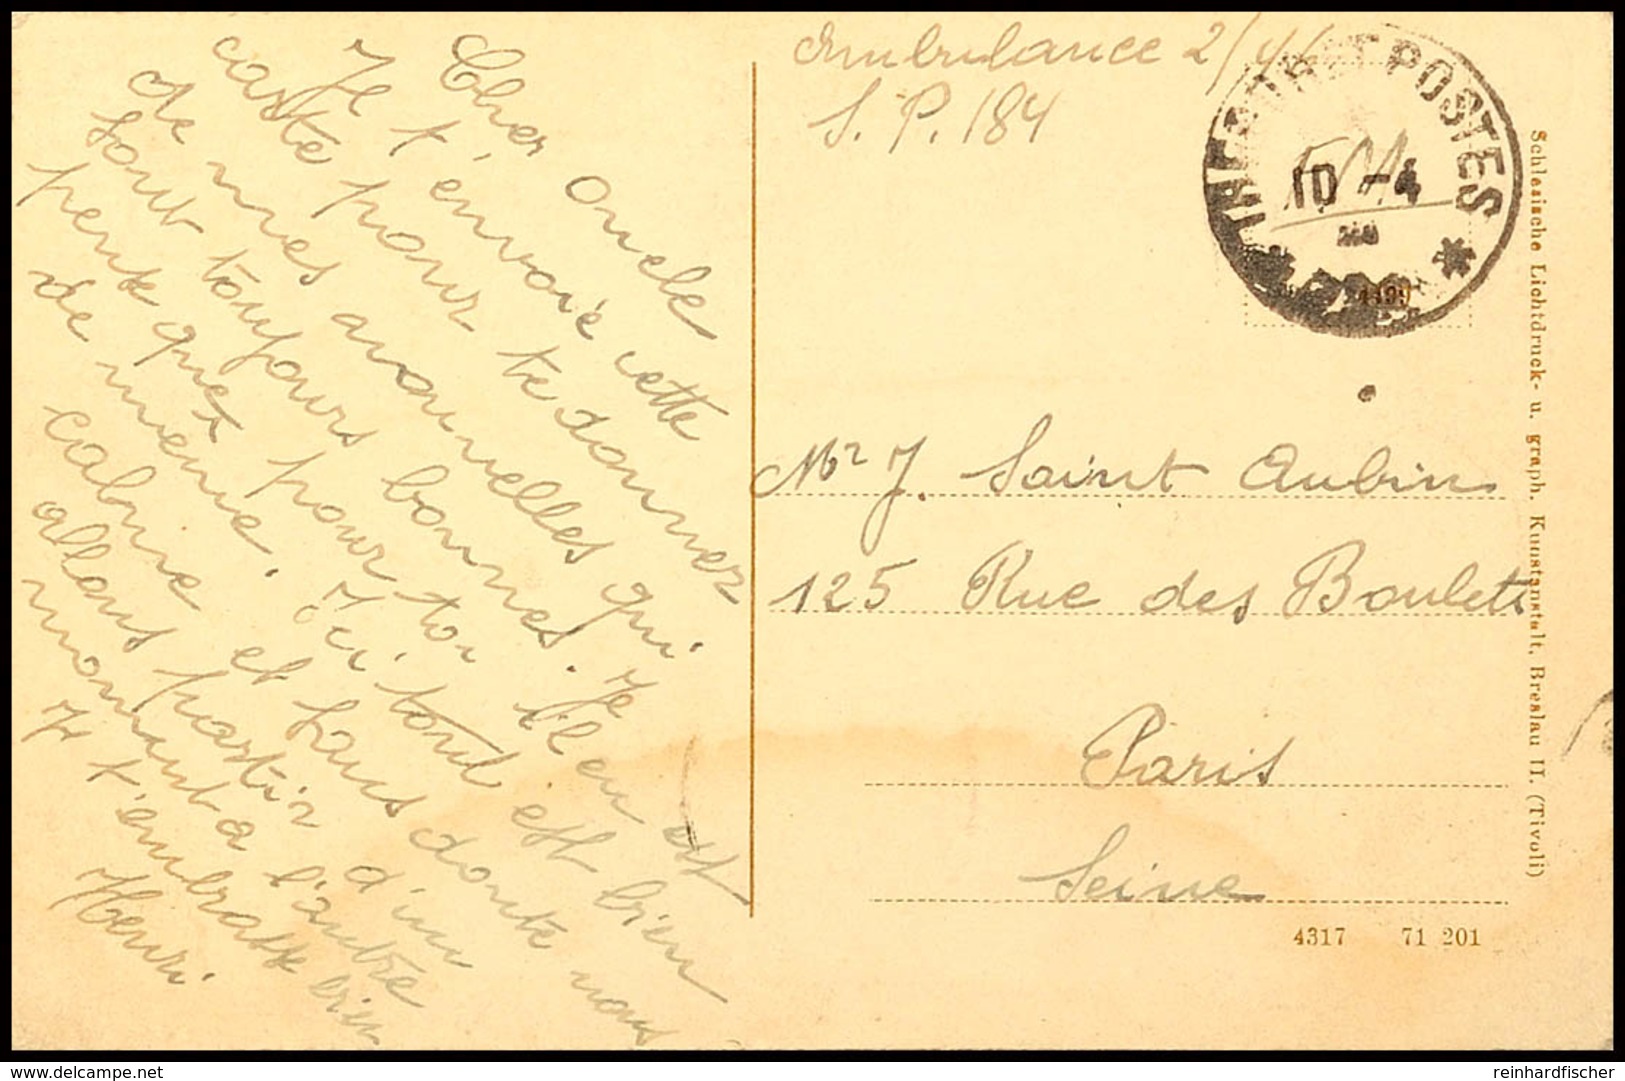 Cher Oncle
Je t'envoie cette
carte pour te donner
de mes nouvelles qui
sont toujours bonnes. Je
pense que pour toi il en est
de même. Ici tout est bien
calme et sans doute nous
allons partir d'un
moment a l'autre
Je t'embrasse bien
Henri
Ambulance 2/44
S. P. 184
TRESOR ET POSTES
10 -4
F M
4499
Mr J. Saint Aubin
125 Rue des Boulets
Paris
Seine
4317 71 201
Schlesische Lichtdruck- u. graph. Kunstanstalt, Breslau II. (Tivoli)
reinhardfischer